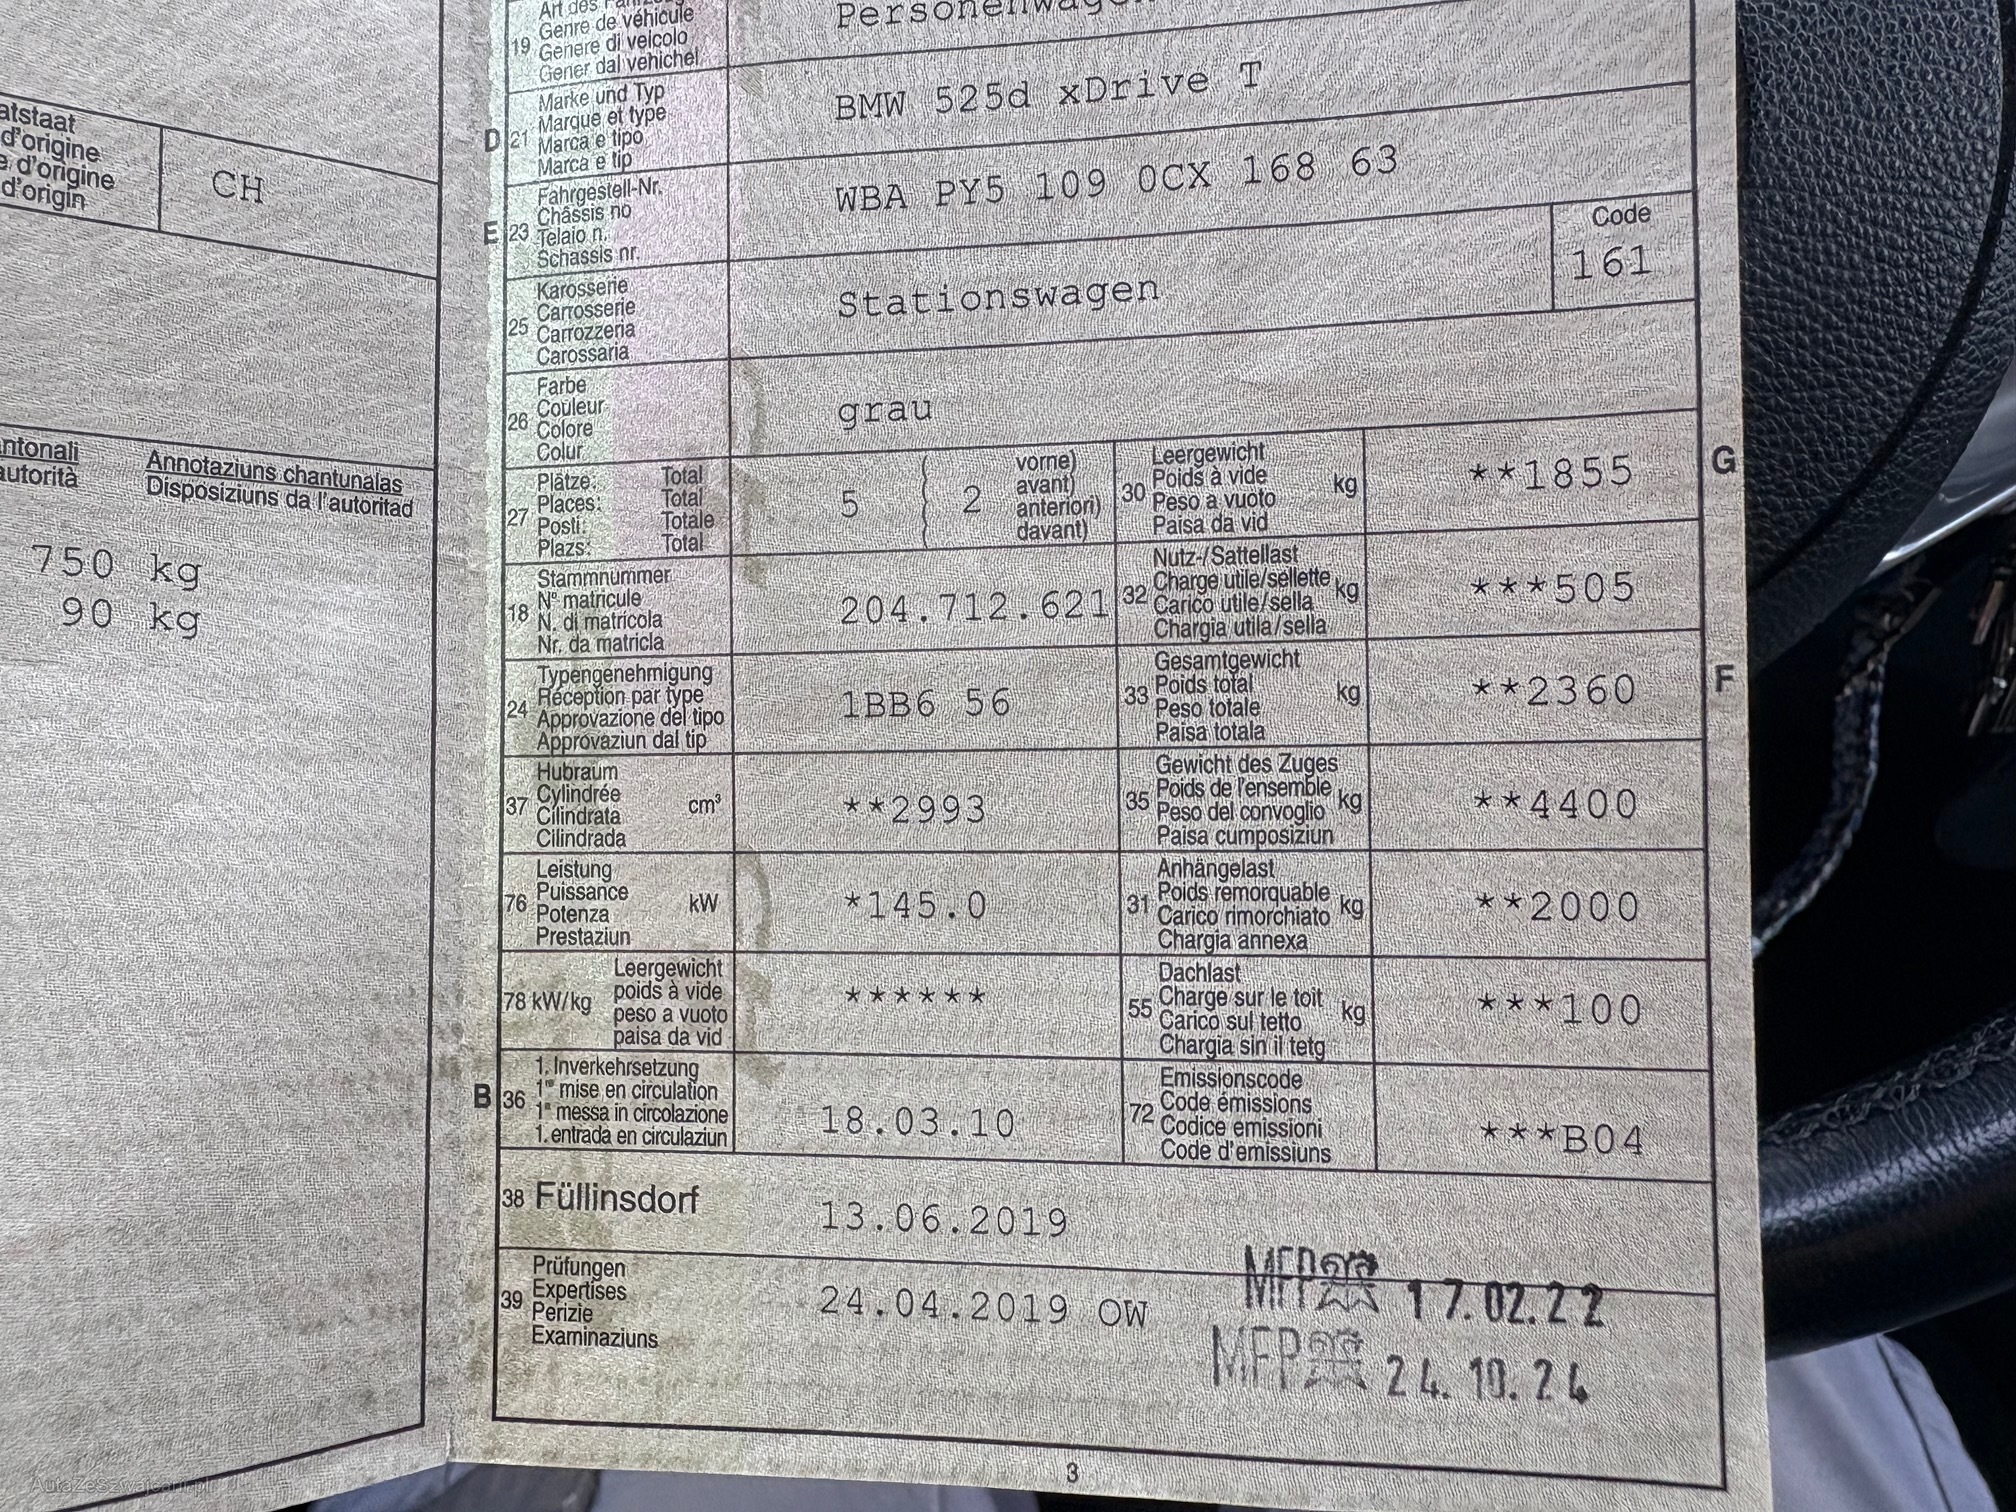 atstaat
d'origine
d'origine
d'origin
CH
ntonali
autorità
Annotaziuns chantunalas
Disposiziuns da l'autoritad
750 kg
90 kg
19
Genre de véhicule
Genere di veicolo
Gener dal vehichel
Personenwagen
D 21
Marke und Typ
Marque et type
Marca e tipo
Marca e tip
BMW 525d xDrive T
E 23
Fahrgestell-Nr.
Châssis no
Telaio n.
Schassis nr.
WBA PY5 109 0CX 168 63
25
Karosserie
Carrosserie
Carrozzeria
Carossaria
Stationswagen
Code
161
26
Farbe
Couleur
Colore
Colur
grau
27
Plätze: Total
Places: Total
Posti: Totale
Plazs: Total
5 { 2
vorne)
avant)
anteriori)
davant)
30
Leergewicht
Poids à vide
Peso a vuoto
Paisa da vid
kg
**1855
G
18
Stammnummer
N° matricule
N. di matricola
Nr. da matricla
204.712.621
32
Nutz-/Sattellast
Charge utile/sellette
Carico utile/sella
Chargia utila/sella
kg
***505
24
Typengenehmigung
Réception par type
Approvazione del tipo
Approvaziun dal tip
1BB6 56
33
Gesamtgewicht
Poids total
Peso totale
Paisa totala
kg
**2360
F
37
Hubraum
Cylindrée
Cilindrata
Cilindrada
cm³
**2993
35
Gewicht des Zuges
Poids de l'ensemble
Peso del convoglio
Paisa cumposiziun
kg
**4400
76
Leistung
Puissance
Potenza
Prestaziun
kW
*145.0
31
Anhängelast
Poids remorquable
Carico rimorchiato
Chargia annexa
kg
**2000
78 kW/kg
Leergewicht
poids à vide
peso a vuoto
paisa da vid
******
55
Dachlast
Charge sur le toit
Carico sul tetto
Chargia sin il tetg
kg
***100
B 36
1. Inverkehrsetzung
1re mise en circulation
1a messa in circolazione
1. entrada en circulaziun
18.03.10
72
Emissionscode
Code émissions
Codice emissioni
Code d'emissiuns
***B04
38 Füllinsdorf
13.06.2019
39
Prüfungen
Expertises
Perizie
Examinaziuns
24.04.2019 OW
MFP 17.02.22
MFP 24.10.24
3
AutaZeSzwajcarii.pl